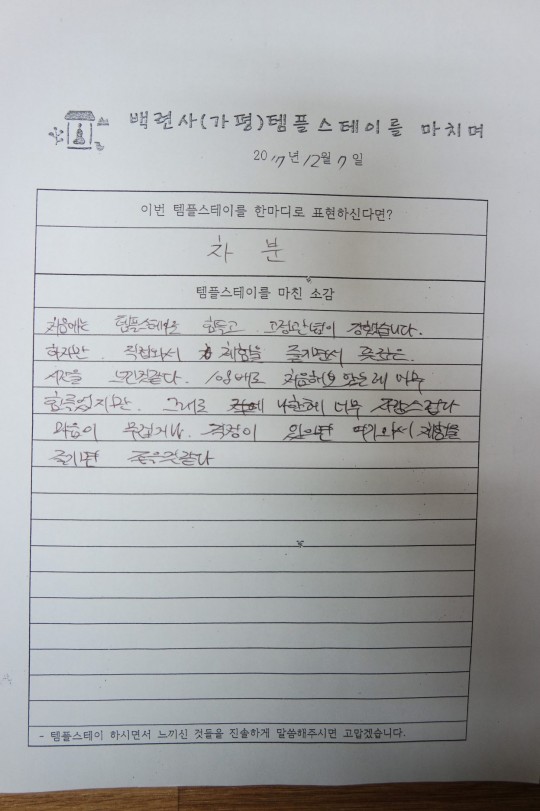 백련사(가평)템플스테이를 마치며
2017년 12월 7일
이번 템플스테이를 한마디로 표현하신다면?
차 분
템플스테이를 마친 소감
처음에는 템플스테이는 힘들고 고정관념이 강했습니다.
하지만 직접와서 체험을 즐기면서 뜻깊은
시간을 느낀것같다. 108배로 처음해보았는데 너무
힘들었지만. 그래도 나한테 너무 자랑스럽다
마음이 무겁거나. 걱정이 있으면 여기와서 체험을
즐기면 좋을것같다
- 템플스테이 하시면서 느끼신 것들을 진솔하게 말씀해주시면 고맙겠습니다.